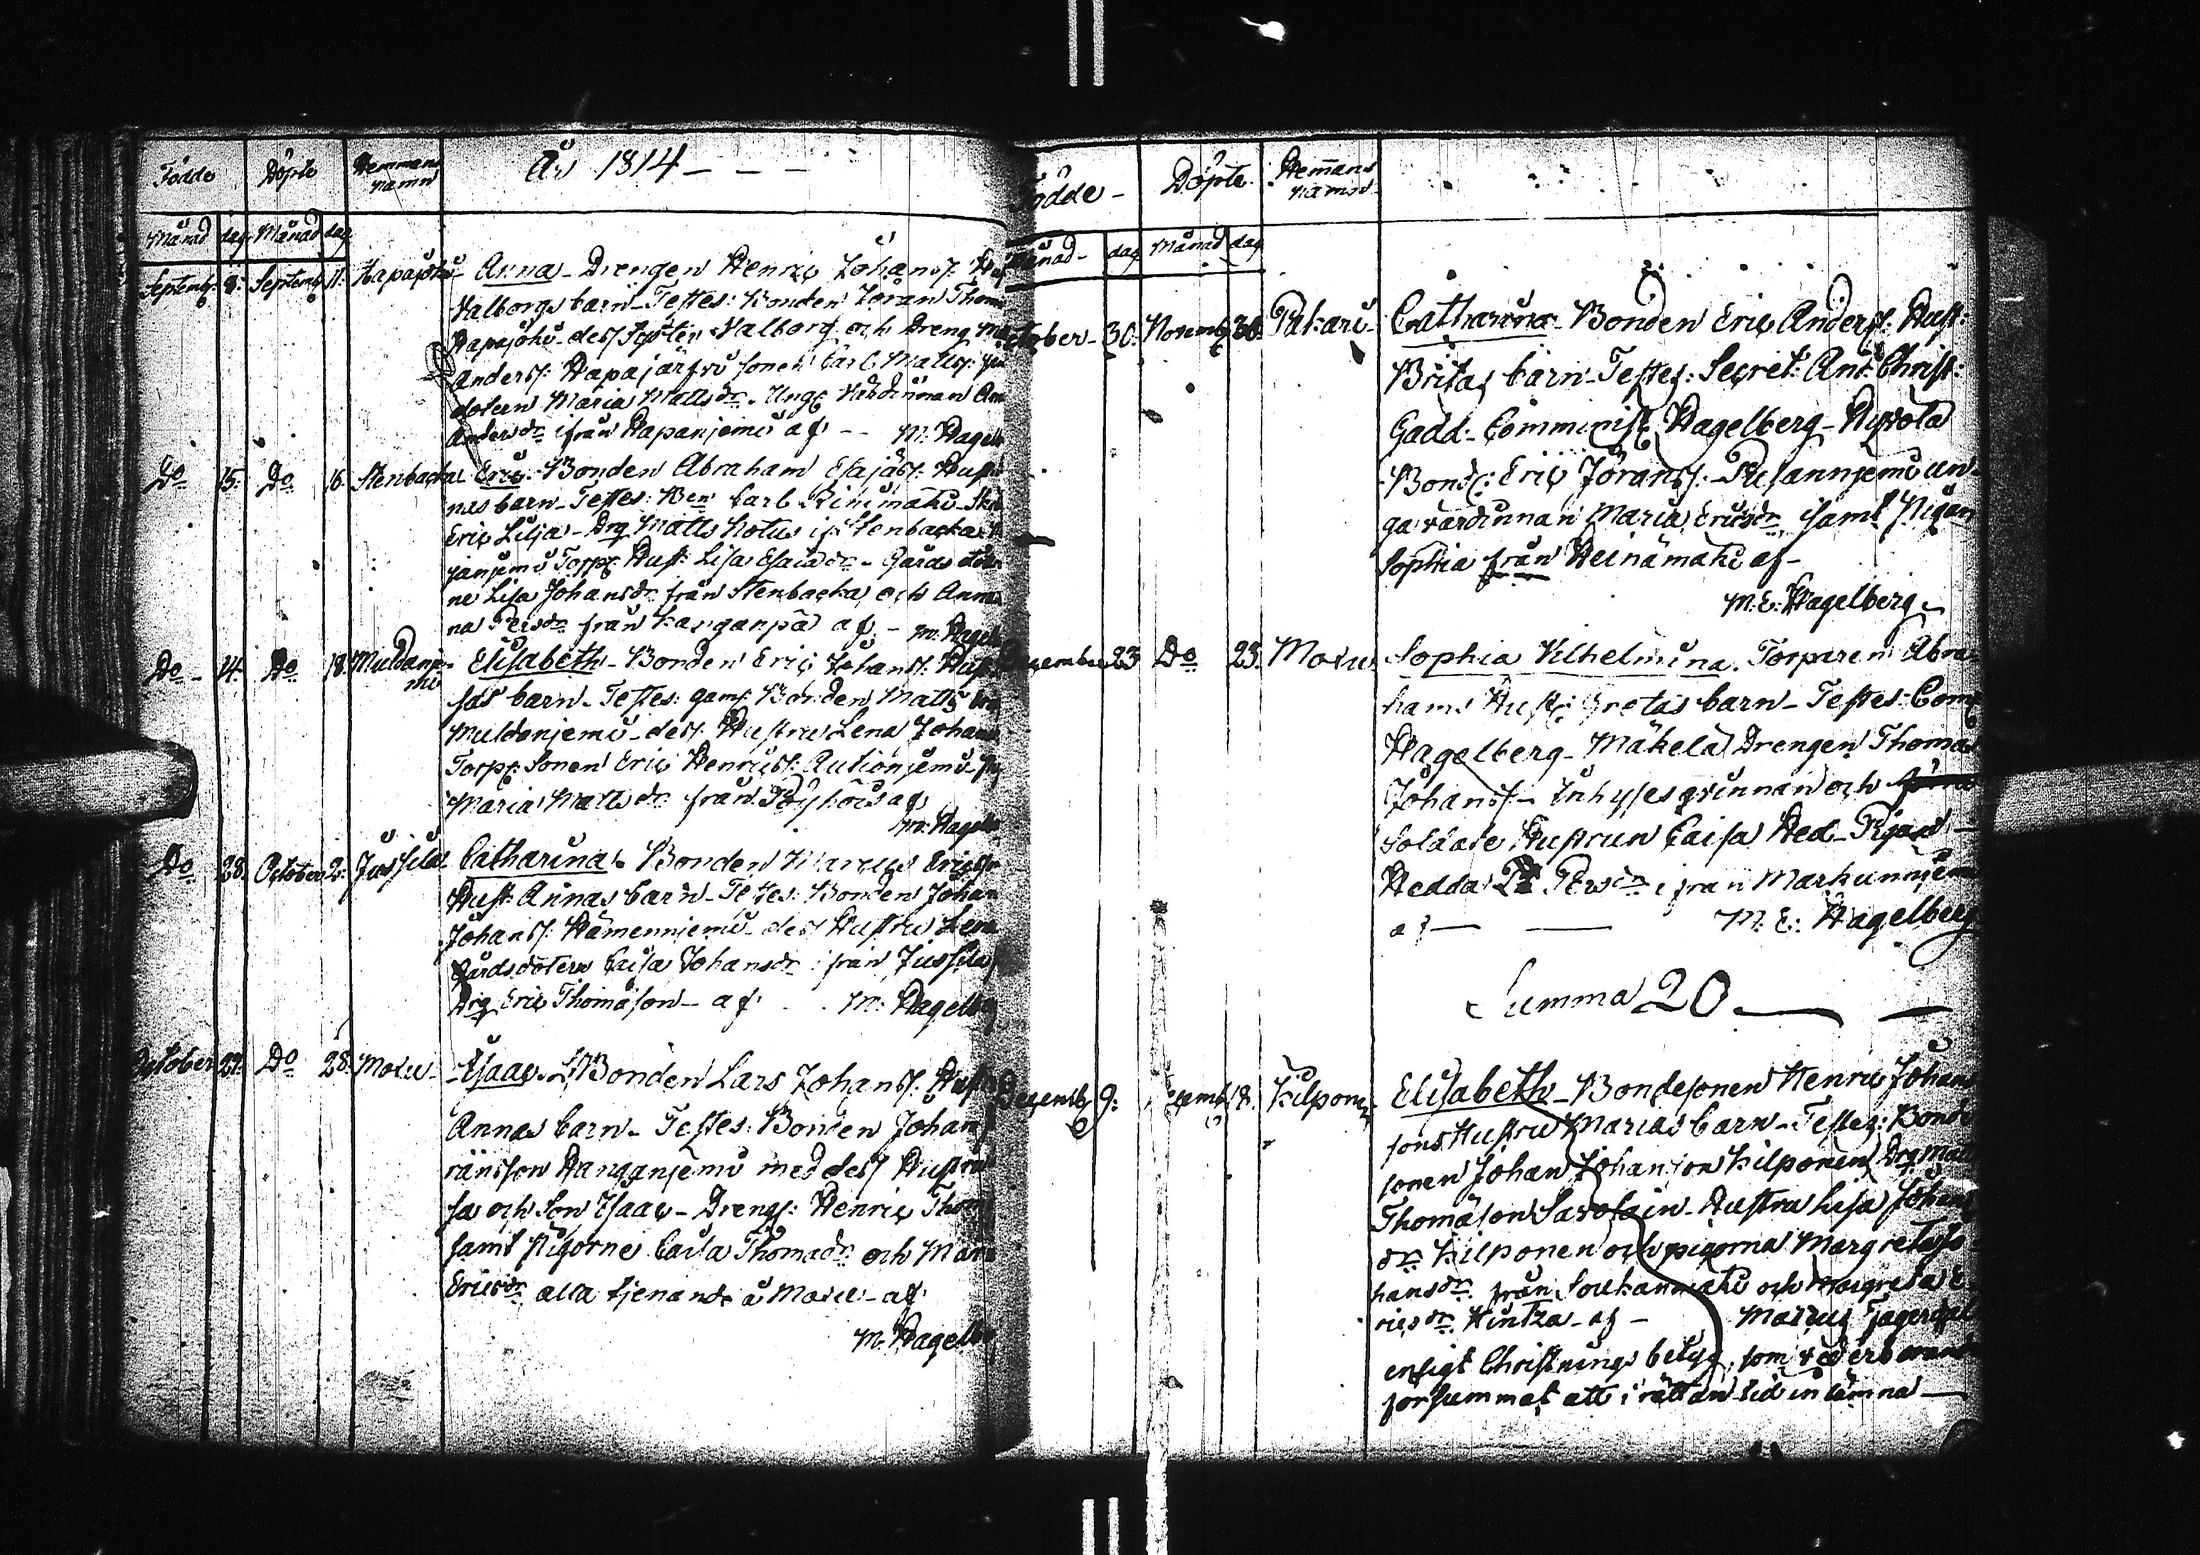 År 1814 - - -
Födde Döpte Hemmans namn
Månad dag Månad dag
Septemb. 8. Septemb. 11. Hapajoki Anna - Drengen Henric Johanss. Hus
Valborgs barn - Testes: Bonden Jöran Thom
Hapajoki - dess Syster Valborg och Dreng
Anderss. Hapajärfvi sonen Carl Mattss.
dotern Maria Matts dr. Unga Värdinnan
Anders dr ifrån Hapanjemi af - - M. Hagel
Do 15. Do 16. Stenbacka Eric. Bonden Abraham Esajæss. Hust
nas barn - Testes: Carl Rinimäki -
Eric Lilja - Drg Matts Stenbacka
Torpr. Hust. Lisa Esaiæ dr - Gårds
ne Lisa Johans dr från Stenbacka och Anna
na Pers dr från Kanganpä af - M. Hagel
Do - 14. Do 18. Muldanjemi Elisabeth - Bonden Eric Johanss. Hust
sas barn - Testes: gaml. Bonden Matts
Muldanjemi - dess Hustru Lena Johans
Torpr. Sonen Eric Henricss. Autionjemi
Maria Matts dr från Pöyhöis af
M. Hagel
Do 28. October 2. Jussila Catharina - Bonden Marcus Ericss
Hust. Annas barn - Testes: Bonden Johan
Johanss. Hämennjemi - dess Hustru Lena
Gårdsdotern Caisa Johans dr ifrån Jussila
Drg Eric Thomason - af M. Hagelb
October 27. Do 28. Moxu - Isaac - Bonden Lars Johanss. Hust
Annas barn - Testes: Bonden Johan
ränsson Hanganjemi med dess Hustru
sa och Son Isaac - Drengs: Henric Thom
samt Pigorne Caisa Thomæ dr och Mar
Erics dr alla tjenande å Moxu - af
M. Hagelb
Födde - Döpte Hemans namn
Månad - dag Månad dag
ctober - 30. Novemb. 30. Pakari - Catharina - Bonden Eric Anderss. Hust:
Britas barn - Testes: Secret: Ant: Christ:
Gadd - Comminist. Hagelberg - Hyvölä
Bond: Eric Jöranss. - Pusannjemi un-
ga värdinnan Maria Erics dr samt Pigan
Sophia från Heinämäki af -
M. E: Hagelberg
ecember 23 Do 25. Moxu Sophia Vilhelmina. Torparen Abra-
hams Hust: Gretas barn - Testes: Com
Hagelberg - Mäkelä Drengen Thomas
Johanss - Inhyses qvinnan och
Soldate Hustrun Caisa Hed - Pigan -
Hedda Pers dr ifrån Markunnjem
af — — M. E: Hagelberg
Summa 20 — —
Decemb. 9. cemb. 18. Kilponen Elisabeth - Bondesonen Henric Johan
sons Hustru Marias barn - Testes: Bonde
sonen Johan Johansson Kilponen Drg Matts
Thomason Savolain - Hustru Lisa Johans
dr Kilponen och pigorna Margreta Jo
hans dr från Soukanmäki och Margreta E
rics dr Hintza - af - Marcus Fagerwall
enligt Christnings betyg, som
försummat att i rättan tid inlämna —